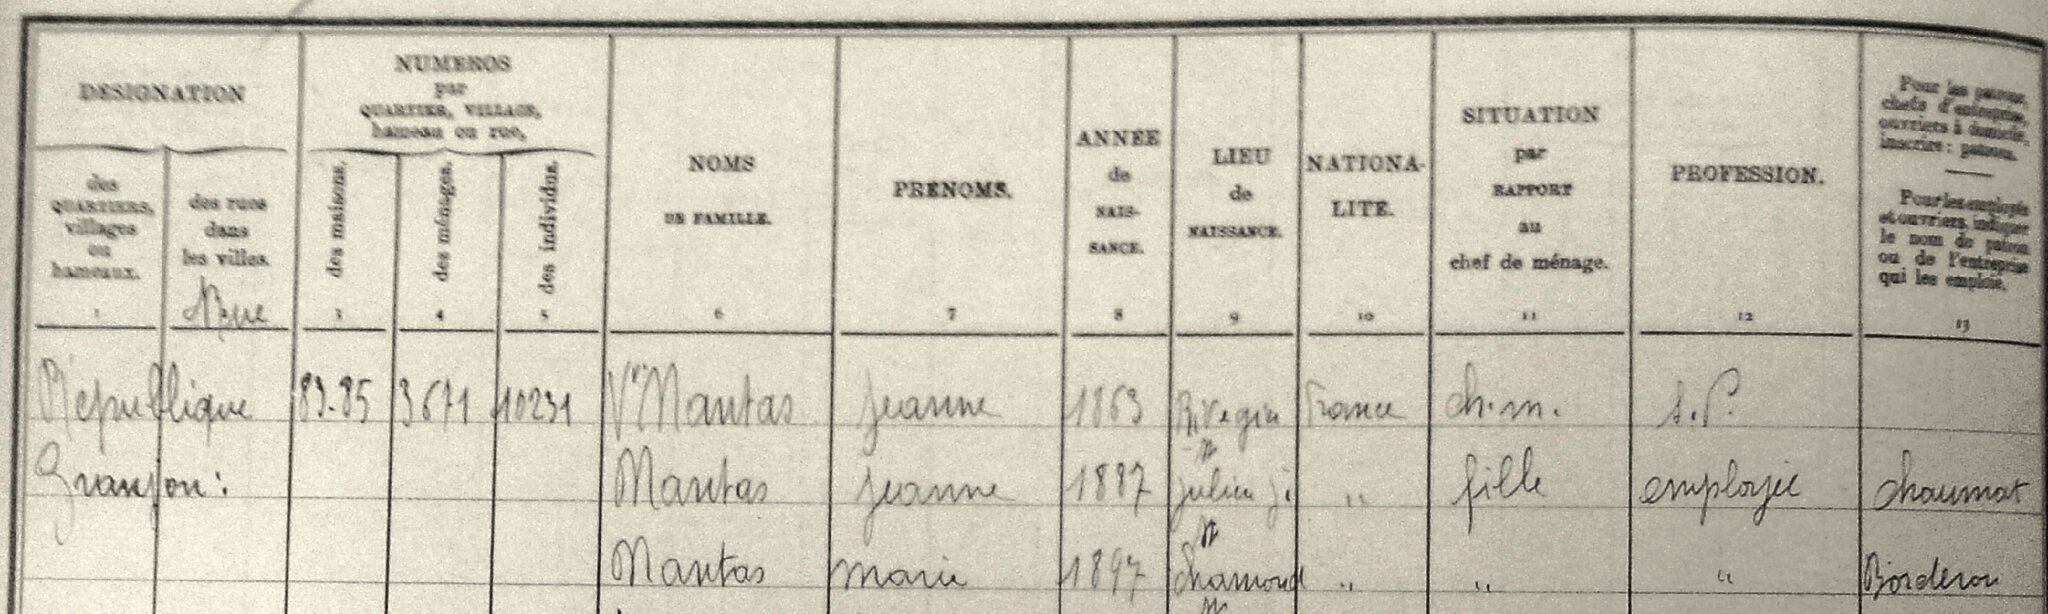 DÉSIGNATION
NUMÉROS
par
QUARTIER, VILLAGE,
hameau ou rue,
des
QUARTIERS,
villages
ou
hameaux.
des rues
dans
les villes.
Rue
des maisons.
des ménages.
des individus.
NOMS
DE FAMILLE.
PRÉNOMS.
ANNÉE
de
NAIS-
SANCE.
LIEU
de
NAISSANCE.
NATIONA-
LITÉ.
SITUATION
par
RAPPORT
au
chef de ménage.
PROFESSION.
Pour les patrons,
chefs d'entreprise,
ouvriers à domicile,
inscrire : patron.
Pour les employés
et ouvriers, indiquer
le nom du patron
ou de l'entreprise
qui les emploie.
1 3 4 5 6 7 8 9 10 11 12 13
République 83-85 3671 10231 Vve Mantas Jeanne 1863 France ch. m. s. P.
Granjon : Mantas Jeanne 1887 Julien " fille employée Chaumat
Mantas Marie 1897 Chamond " " " Borderon